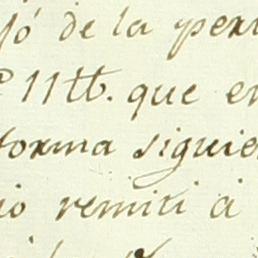 jó de la per
11tt. que en
forma siguien
io remiti à